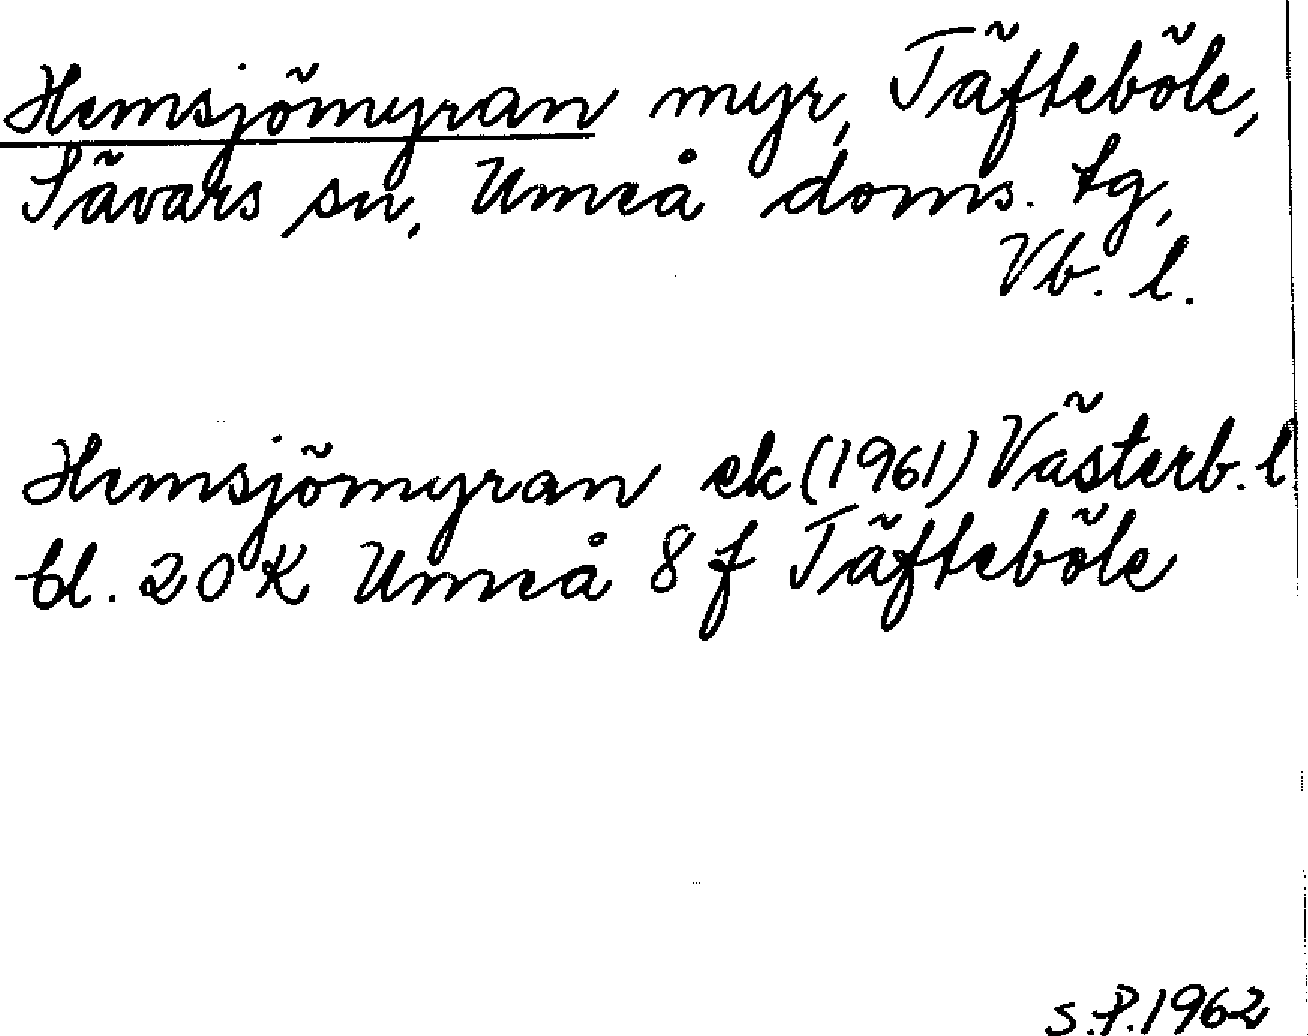 Hemsjömyran myr, Täfteböle,
Sävars sn, Umeå doms. tg,
Vb. l.
Hemsjömyran ek (1961) Västerb. l
bl. 20 K Umeå 8 f Täfteböle
S.P. 1962